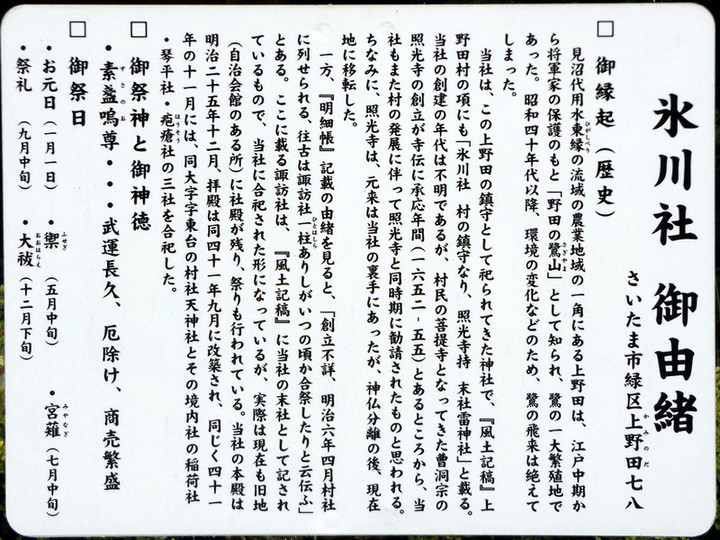 氷川社 御由緒
さいたま市緑区上野田七八
かみのだ
□ 御縁起（歴史）
見沼代用水東縁の流域の農業地域の一角にある上野田は、江戸中期か
ひがしべり
ら将軍家の保護のもと「野田の鷺山」として知られ、鷺の一大繁殖地で
さぎやま
あった。昭和四十年代以降、環境の変化などのため、鷺の飛来は絶えて
しまった。
当社は、この上野田の鎮守として祀られてきた神社で、『風土記稿』上
野田村の項にも「氷川社 村の鎮守なり、照光寺持 末社雷神社」と載る。
当社の創建の年代は不明であるが、村民の菩提寺となってきた曹洞宗の
照光寺の創立が寺伝に承応年間（一六五二‐五五）とあるところから、当
社もまた村の発展に伴って照光寺と同時期に勧請されたものと思われる。
ちなみに、照光寺は、元来は当社の裏手にあったが、神仏分離の後、現在
地に移転した。
一方、『明細帳』記載の由緒を見ると、「創立不詳、明治六年四月村社
に列せられる、往古は諏訪社一柱ありしがいつの頃か合祭したりと云伝ふ」
ひとはしら
とある。ここに載る諏訪社は、『風土記稿』に当社の末社として記され
ているもので、当社に合祀された形になっているが、実際は現在も旧地
（自治会館のある所）に社殿が残り、祭りも行われている。当社の本殿は
明治二十五年十二月、拝殿は同四十一年九月に改築され、同じく四十一
年の十一月には、同大字字東台の村社天神社とその境内社の稲荷社
・琴平社・疱瘡社の三社を合祀した。
ほうそう
□ 御祭神と御神徳
・素盞嗚尊・・・武運長久、厄除け、商売繁盛
すさのお
□ 御祭日
・お元日（一月一日） ・禦（五月中旬） ・宮薙（七月中旬）
ふせぎ みやなぎ
・祭礼（九月中旬） ・大祓（十二月下旬）
おおはらえ